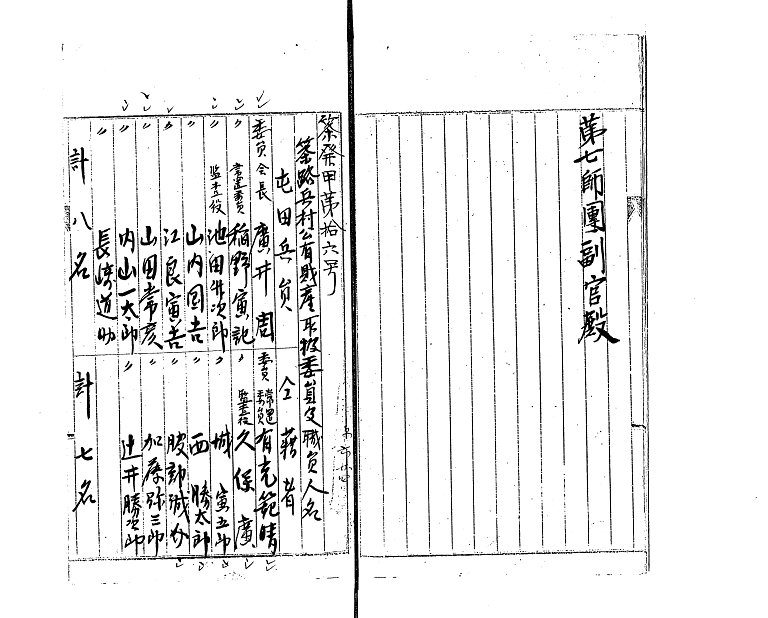 第七師團副官殿
篠発甲第拾六号
篠路兵村公有財産取扱委員及職員人名
屯田兵員
委員会長 廣井周
〃 常置委員 稲野寅記
〃 監査役 池田
〃 山内
〃 江良寅吉
〃 山田常彦
〃 内山一太郎
〃 長崎道助
計八名
仝藉者
委員 常置委員 有克範晴
〃 監査役 久保廣
〃 城寅五郎
〃 西勝太郎
〃 服部
〃 加藤弥三郎
〃 辻井勝次郎
計七名